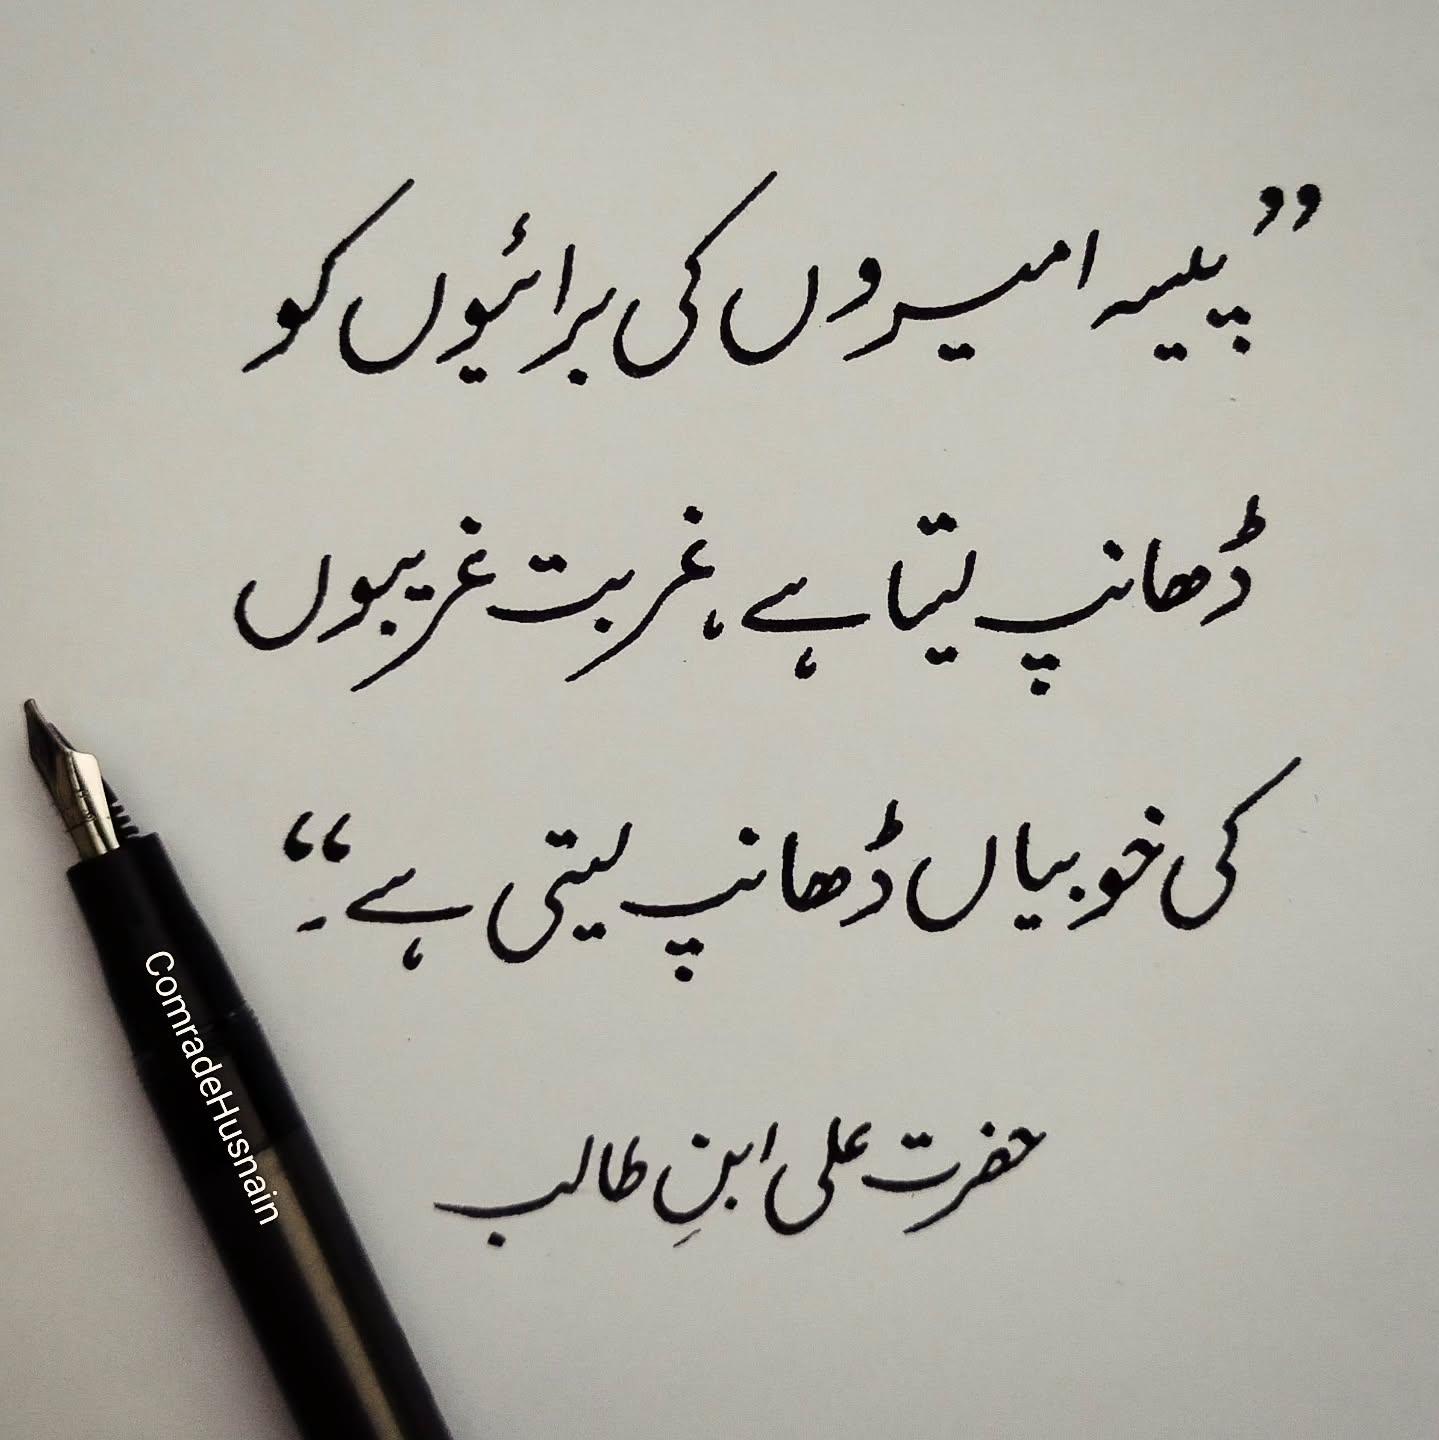 ”پیسہ امیروں کی برائیوں کو
ڈھانپ لیتا ہے، غربت غریبوں
کی خوبیاں ڈھانپ لیتی ہے۔“
حضرت علی ابنِ طالب
ComradeHusnain